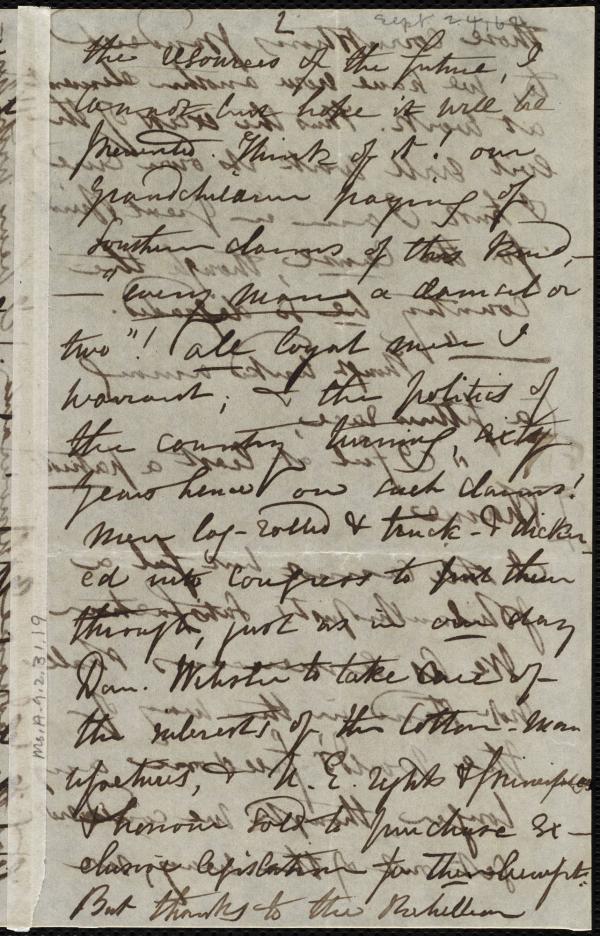 2
Sept 24, 
the resources of the future, I
cannot but hope it will be
prevented. Think of it! our
Grandchildren paying of
Southern claims of this kind,—
— "every man a claim at or
two"! all loyal men I
warrant; & the politics of
the country turning, sixty
years hence on such claims!
Men log-rolled & truck-& dicker-
ed into Congress to put them
through, just as in our day
Dan. Webster to take care of
the interests, of the Cotton-Man
ufactures, & N. E. rights & principles
& honour sold to purchase ex-
clusive legislation for their benefit.
But thanks to the Rebellion
Ms. A. 9. 2. 31. 19